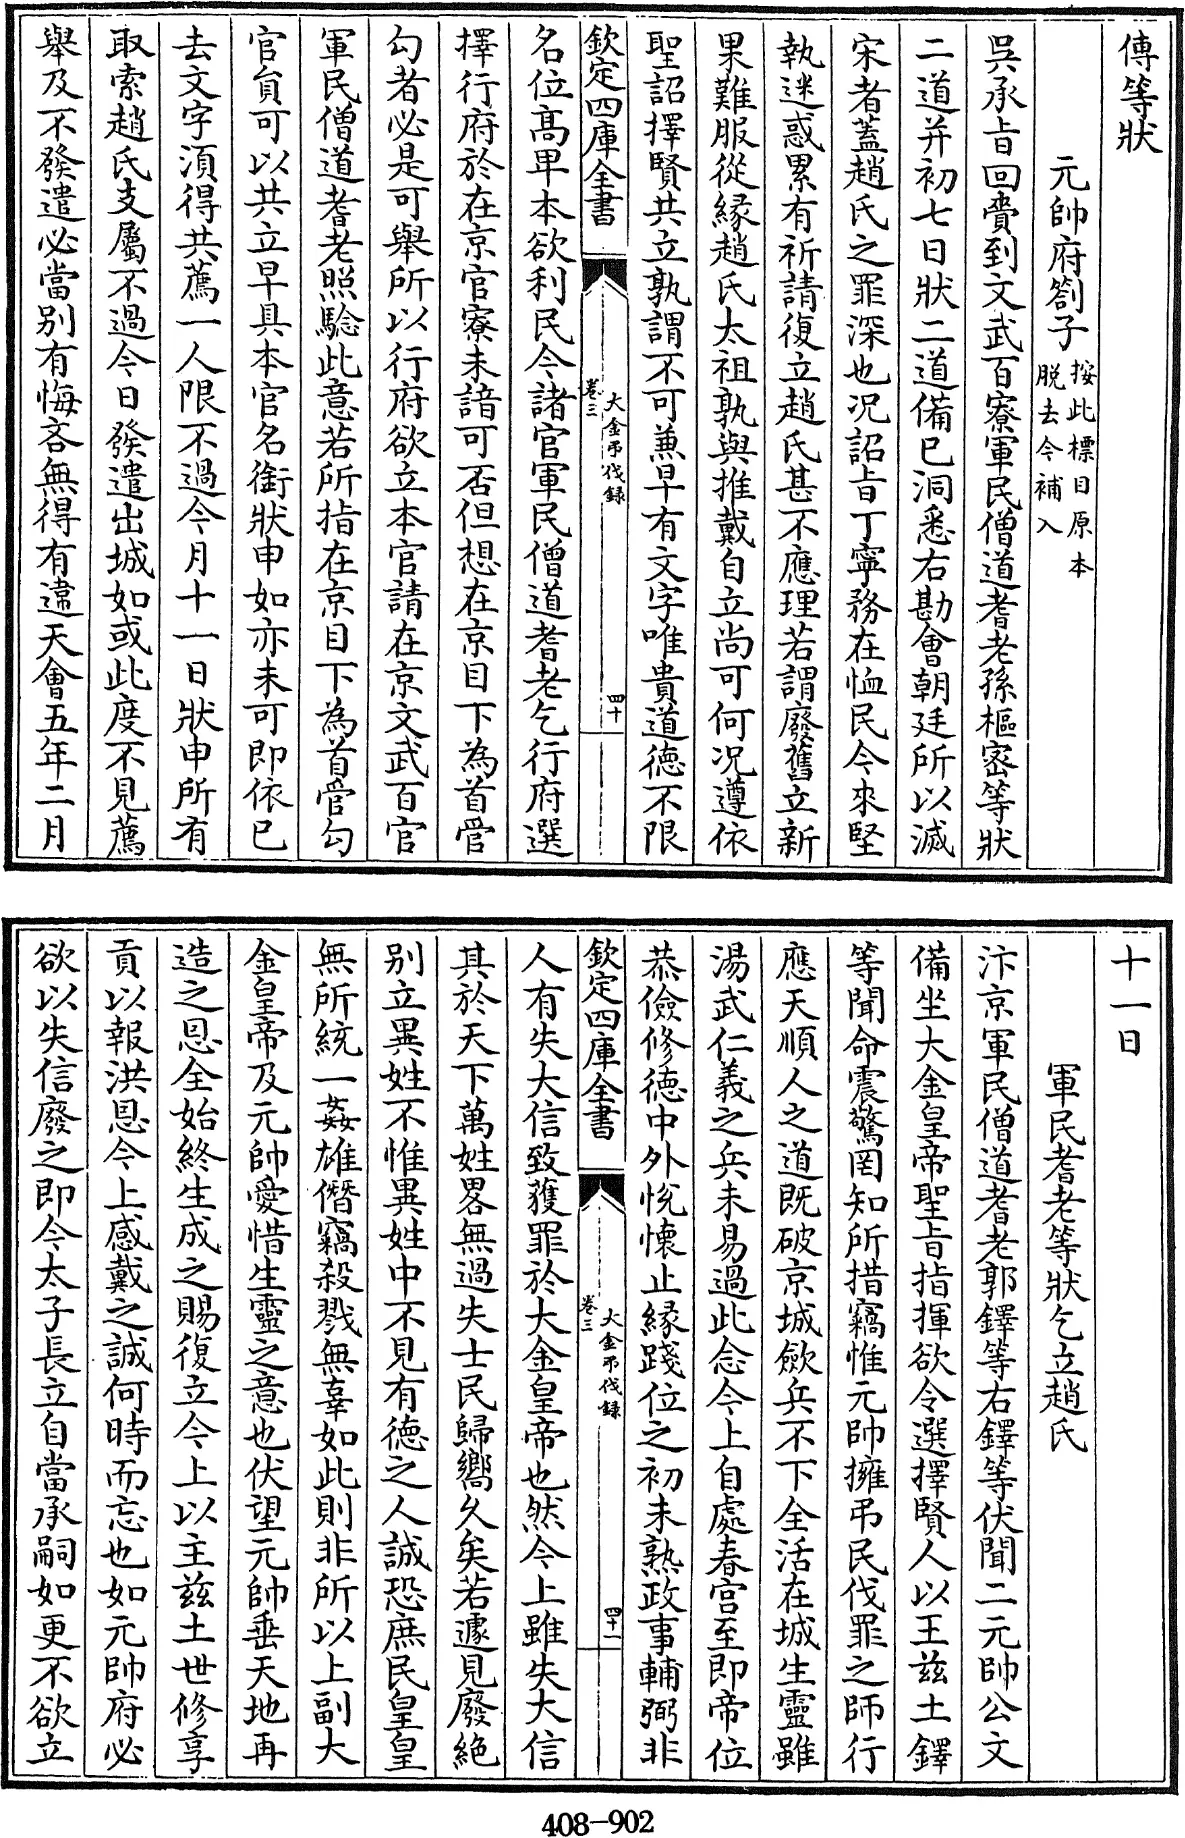 傅等狀
元帥府劄子按此標目原本脫去今補入
吳承旨回賫到文武百寮軍民僧道耆老孫樞密等狀
二道并初七日狀二道備已洞悉右勘會朝廷所以滅
宋者蓋趙氏之罪深也況詔旨丁寧務在恤民今來堅
執迷惑累有祈請復立趙氏甚不應理若謂廢舊立新
果難服從緣趙氏太祖孰與推戴自立尚可何況遵依
聖詔擇賢共立孰謂不可兼早有文字唯貴道德不限
欽定四庫全書
大金弔伐錄
卷三
四十
名位高卑本欲利民今諸官軍民僧道耆老乞行府選
擇行府於在京官寮未諳可否但想在京目下為首管
勾者必是可舉所以行府欲立本官請在京文武百官
軍民僧道耆老照驗此意若所指在京目下為首管勾
官員可以共立早具本官名銜狀申如亦未可即依已
去文字須得共薦一人限不過今月十一日狀申所有
取索趙氏支屬不過今日發遣出城如或此度不見薦
舉及不發遣必當別有悔吝無得有違天會五年二月
十一日
軍民耆老等狀乞立趙氏
汴京軍民僧道耆老郭鐸等右鐸等伏聞二元帥公文
備坐大金皇帝聖旨指揮欲令選擇賢人以王茲土鐸
等聞命震驚罔知所措竊惟元帥擁弔民伐罪之師行
應天順人之道既破京城歛兵不下全活在城生靈雖
湯武仁義之兵未易過此念今上自處春宮至即帝位
恭儉修德中外悅懷止緣踐位之初未熟政事輔弼非
欽定四庫全書
大金弔伐錄
卷三
四十一
人有失大信致獲罪於大金皇帝也然今上雖失大信
其於天下萬姓畧無過失士民歸嚮久矣若遽見廢絕
別立異姓不惟異姓中不見有德之人誠恐庶民皇皇
無所統一姦雄僭竊殺戮無辜如此則非所以上副大
金皇帝及元帥愛惜生靈之意也伏望元帥垂天地再
造之恩全始終生成之賜復立今上以主茲土世修享
貢以報洪恩今上感戴之誠何時而忘也如元帥府必
欲以失信廢之即今太子長立自當承嗣如更不欲立
408-902